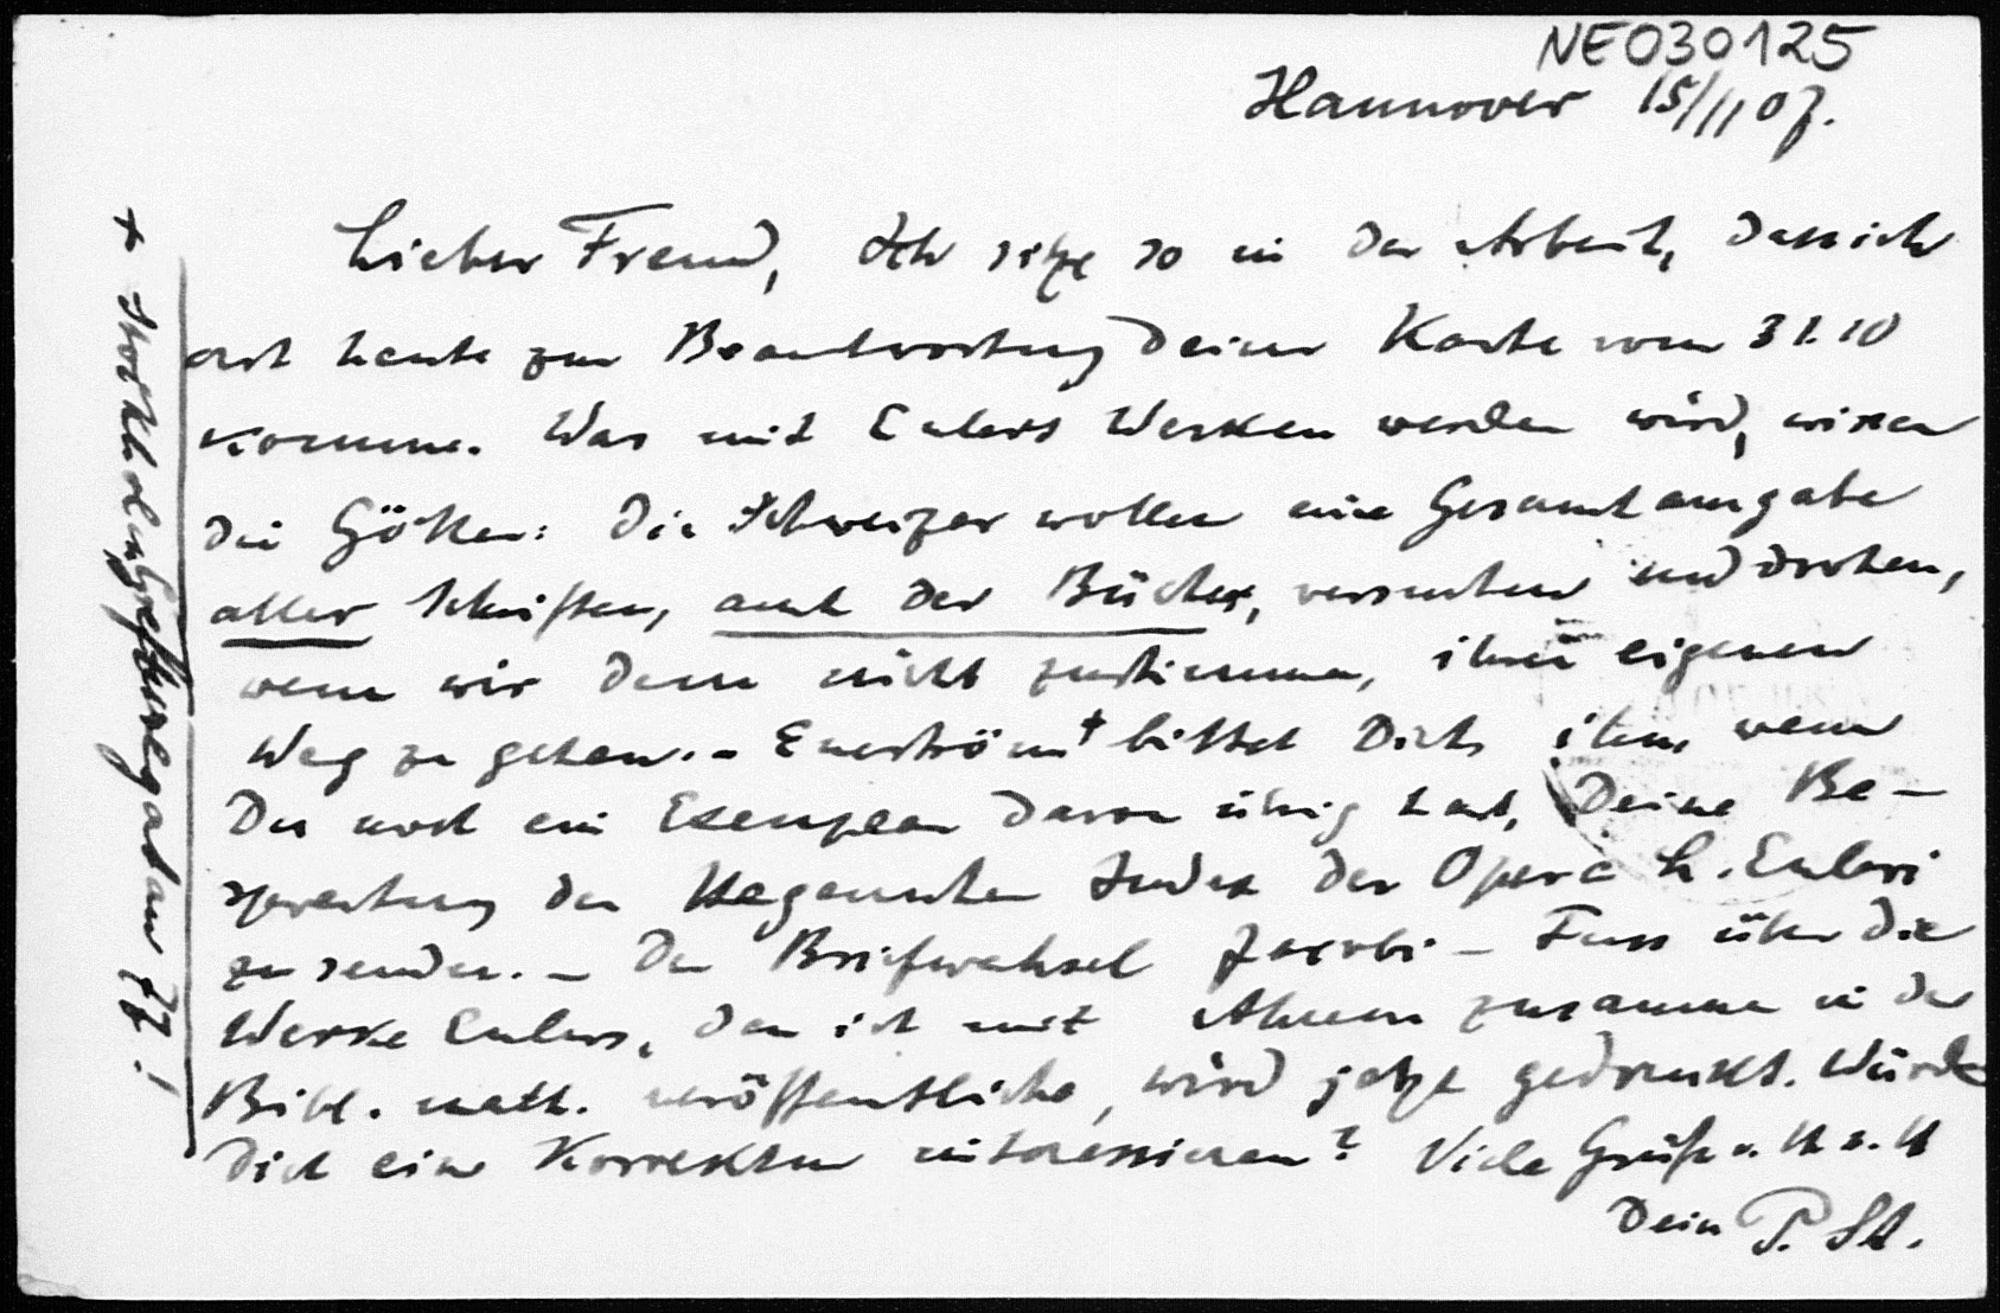 NE030125
Hannover 15/11 07.
Lieber Freund, Ich sitze so in der Arbeit, dass ich
erst heute zur Beantwortung Deiner Karte vom 31.10
komme. Was mit Eulers Werken werden wird, wissen
die Götter: die Schweizer wollen eine Gesamtausgabe
aller Schriften, auch der Bücher, versuchen und drohen,
wenn wir dem nicht zustimmen, ihren eigenen
Weg zu gehen. - Eneström+ bittet Dich, ihm, wenn
Du noch ein Exemplar davon übrig hast, Deine Be-
sprechung des Hagenschen Index der Opera L. Euleri
zu senden. - Der Briefwechsel Jacobi - Fuss über die
Werke Eulers, den ich mit Ahrens zusammen in der
Bibl. math. veröffentliche, wird jetzt gedruckt. Würde
Dich eine Korrektur interessieren? Viele Grüße v. H z. H
Dein P. St.
+ Stockholm, Grefturegatan 77!